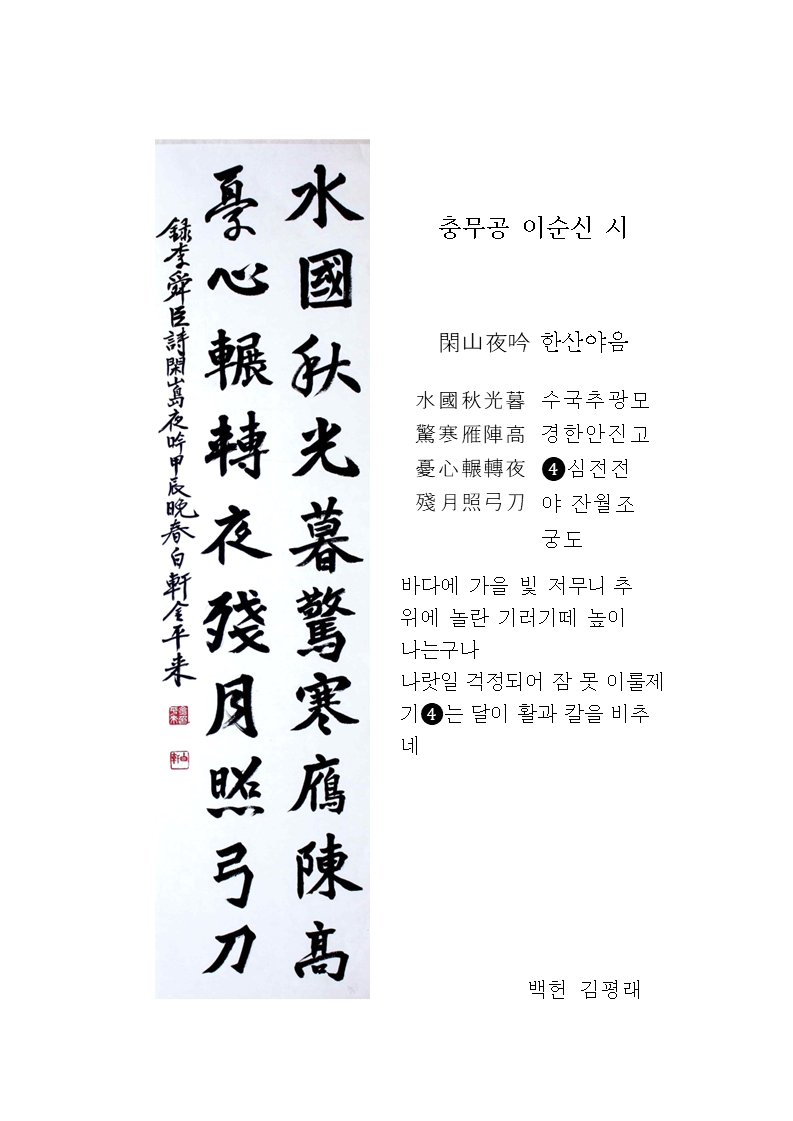 水國秋光暮驚寒鴈陳高
憂心輾轉夜殘月照弓刀
録李舜臣詩閑山島夜吟甲辰晩春白軒金平来
충무공 이순신 시
閑山夜吟 한산야음
水國秋光暮 수국추광모
驚寒雁陣高 경한안진고
憂心輾轉夜 ❹심전전
殘月照弓刀 야 잔월조
궁도
바다에 가을 빛 저무니 추
위에 놀란 기러기떼 높이
나는구나
나랏일 걱정되어 잠 못 이룰제
기❹는 달이 활과 칼을 비추
네
백헌 김평래